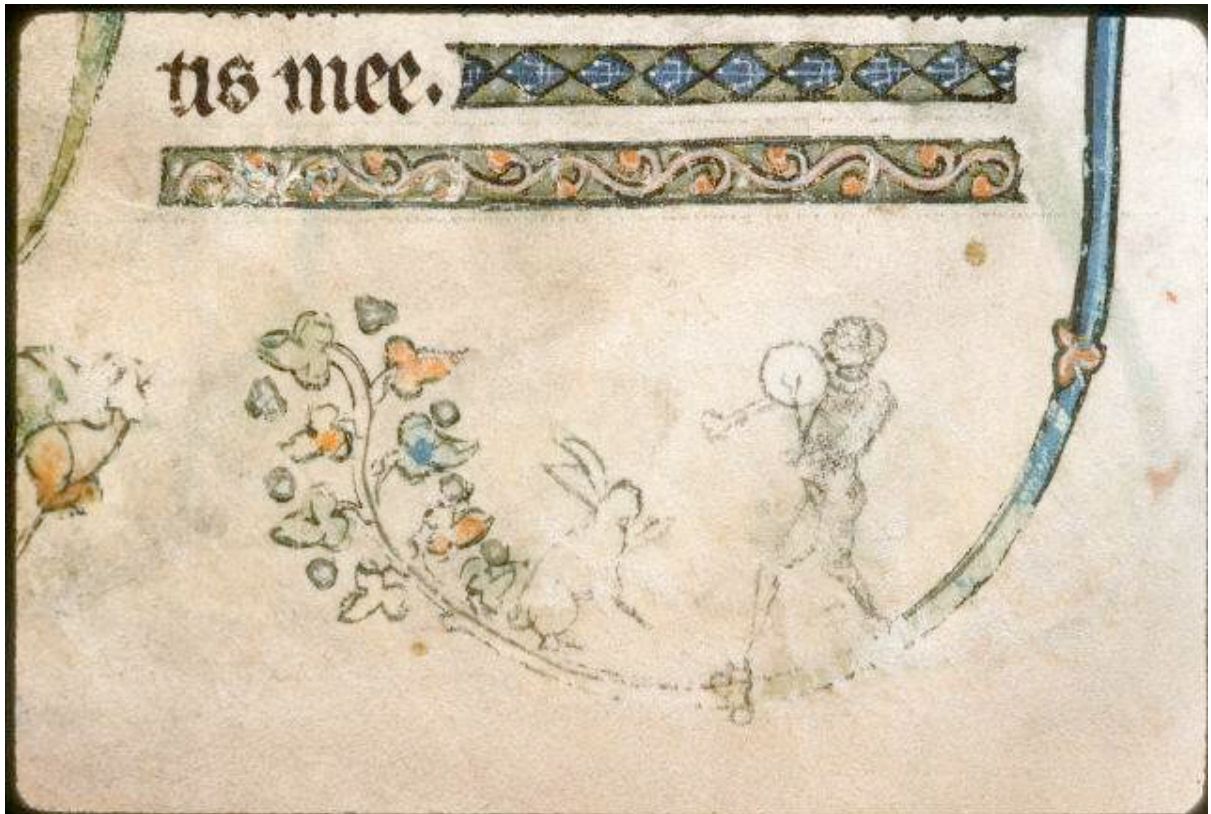 tis mee.